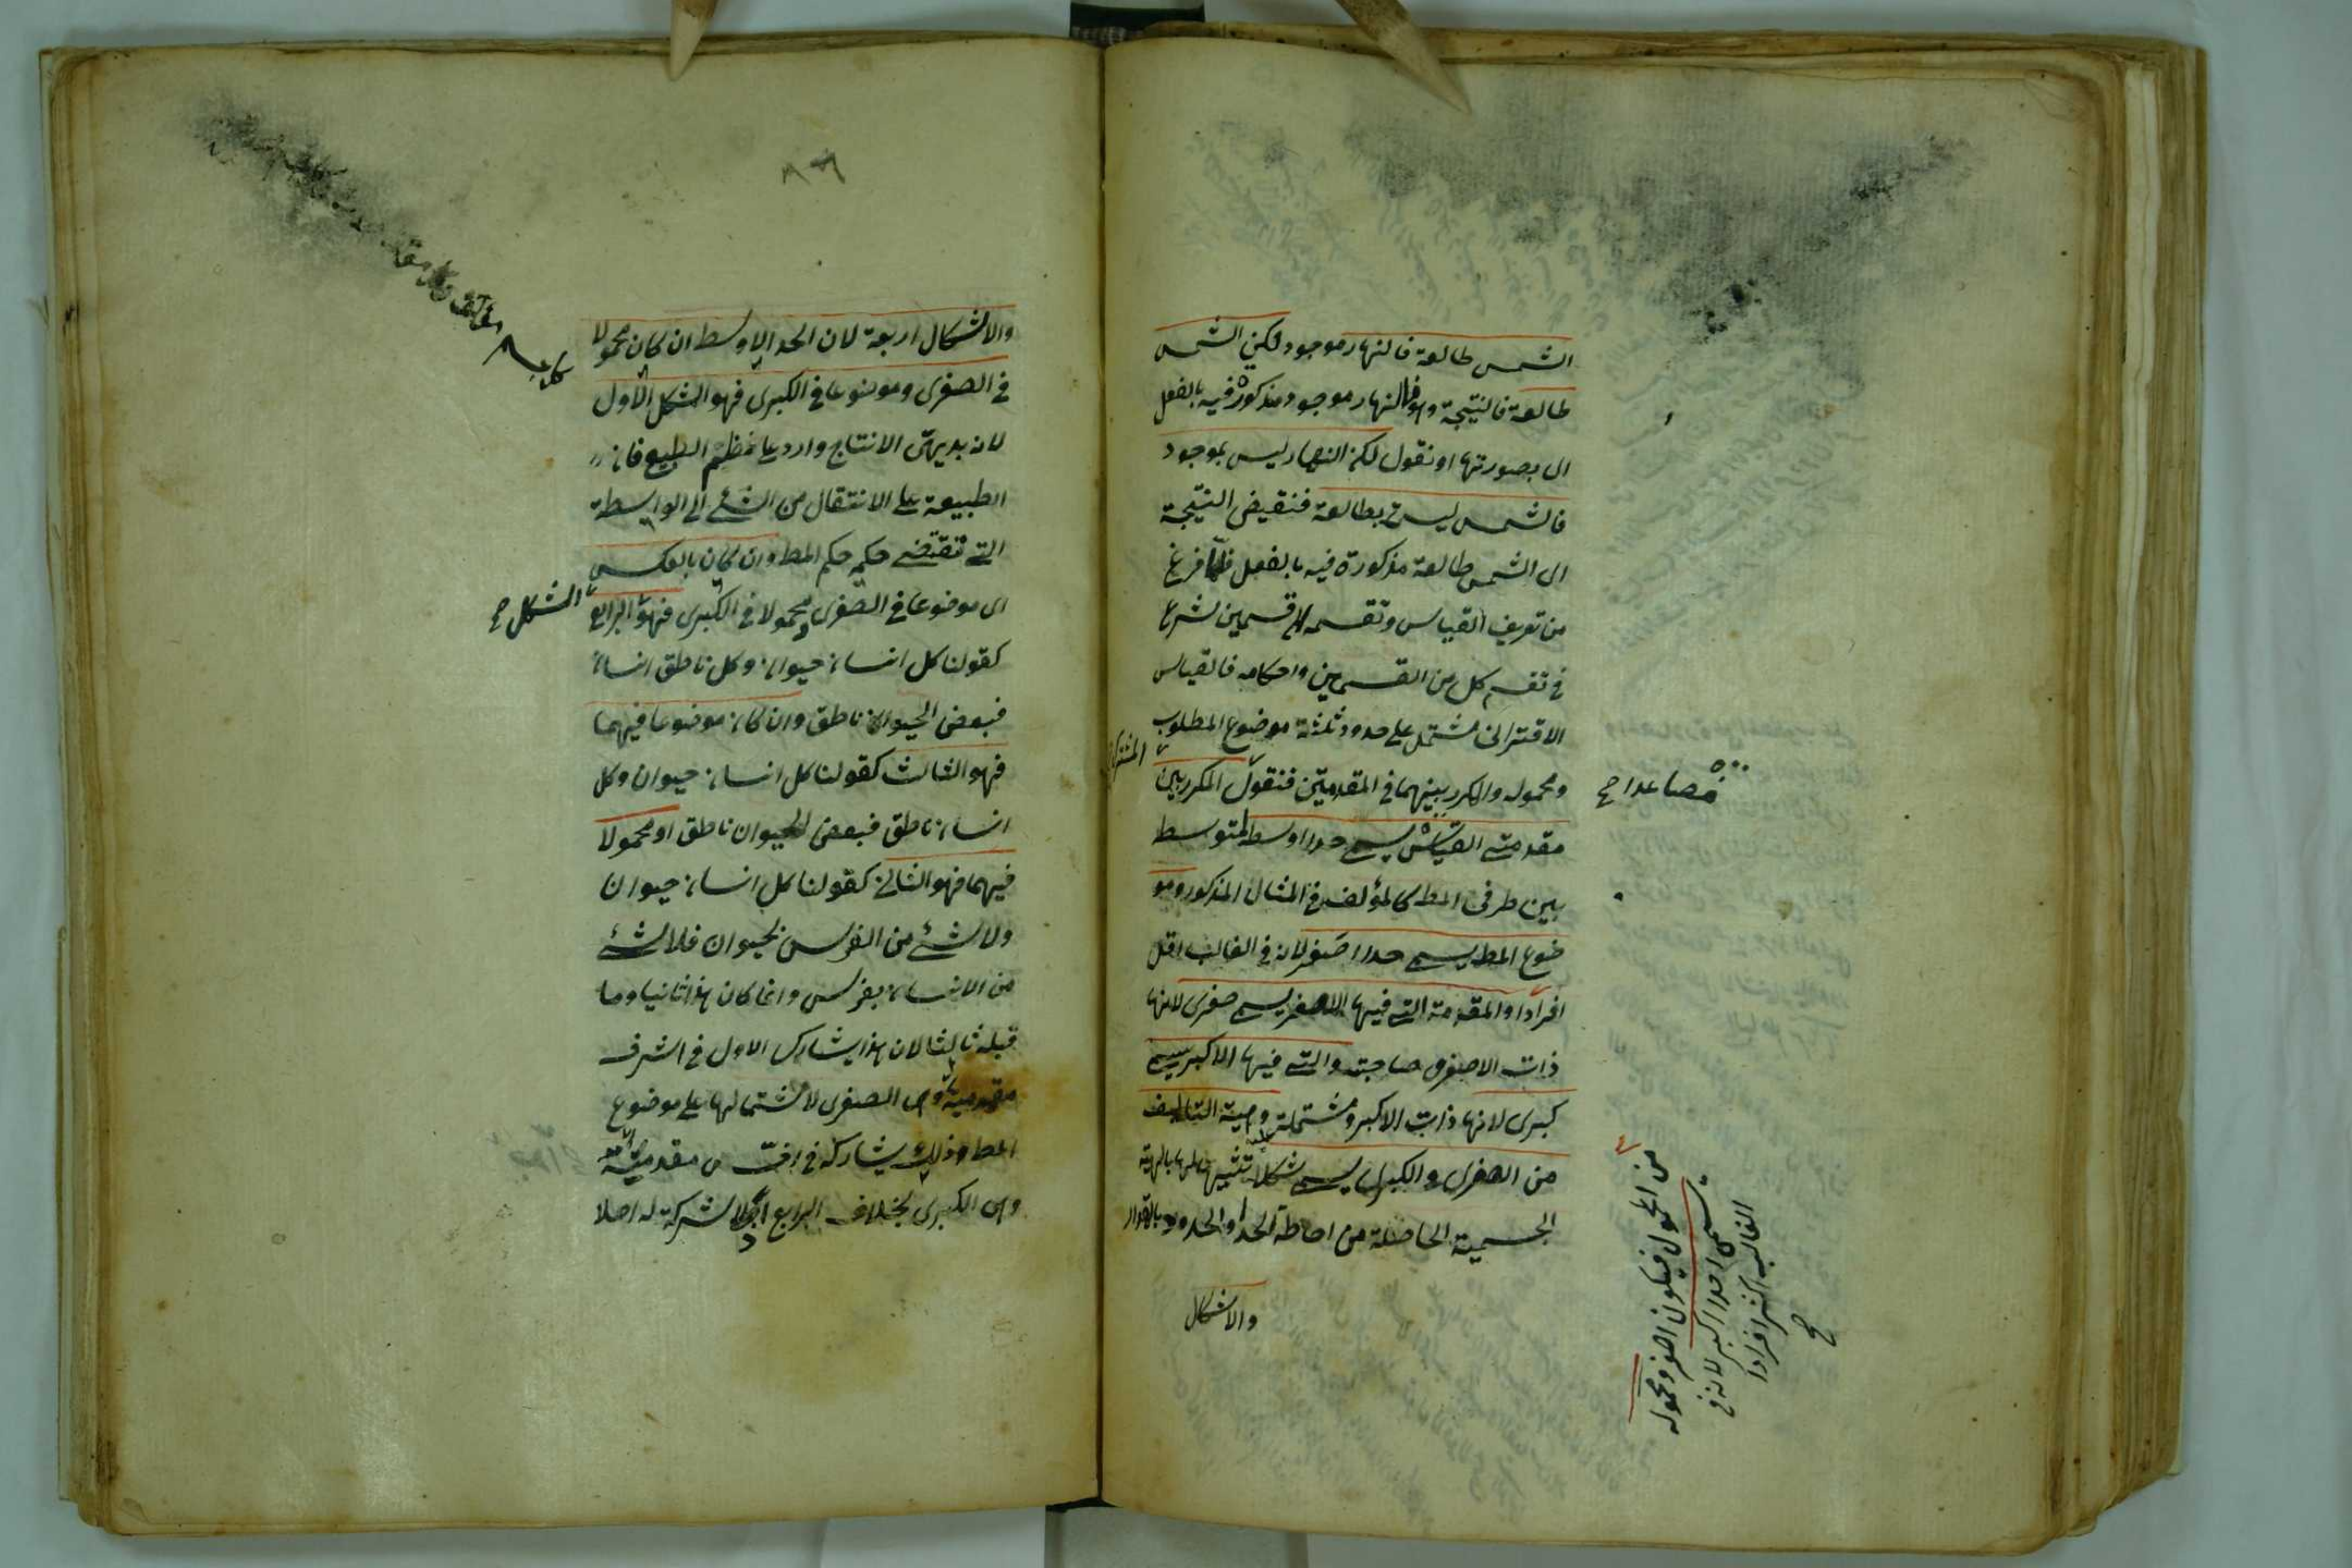 الشمس طالعة فالنهار موجود لكن الشمس
طالعة فالنتيجة وهو فالنهار موجود مذكورة فيه بالفعل
اى بصورتها او نقول لكن النهار ليس بموجود
فالشمس ليست بطالعة فنقيض النتيجة
اى الشمس طالعة مذكورة فيه بالفعل فلما فرغ
من تعريف القياس وتقسيمه الى قسمين شرع
فى تقسيم كل من القسمين واحكامه فالقياس
الاقترانى مشتمل على حدود ثلثة موضوع المطلوب
ومحموله والمكرر بينهما فى المقدمتين فنقول المكرر بين
مقدمتى القياس يسمى حدا اوسط لتوسطه
بين طرفى المط كالمؤلف فى المثال المذكور ومو
ضوع المط يسمى حدا اصغر لانه فى الغالب اقل
افرادا والمقدمة التى فيها الاصغر يسمى صغرى لانها
ذات الاصغر وصاحبته والتى فيها الاكبر يسمى
كبرى لانها ذات الاكبر ومشتملة وهيئة التأليف
من الصغرى والكبرى يسمى شكلا تشبيها لها بالهيئة
الجسمية الحاصلة من احاطة الحد او الحدود بالمقدار
والاشكال
فصاعدا صح
المشترك
من المحمول فيكون اصغر ومحموله
يسمى حدا اكبر لانه فى
الغالب اكثر افرادا
صح
٨٦
والاشكال اربعة لان الحد الاوسط ان كان محمولا
فى الصغرى وموضوعا فى الكبرى فهو الشكل الاول
لانه بديهى الانتاج وارد على نظم الطبع فان
الطبيعة على الانتقال من الشئ الى الواسطة
التى تقتضى حكم المط وان كان بالعكس
اى موضوعا فى الصغرى ومحمولا فى الكبرى فهو الرابع
كقولنا كل انسان حيوان وكل ناطق انسان
فبعض الحيوان ناطق وان كان موضوعا فيهما
فهو الثالث كقولنا كل انسان حيوان وكل
انسان ناطق فبعض الحيوان ناطق او محمولا
فيهما فهو الثانى كقولنا كل انسان حيوان
ولا شئ من الفرس بحيوان فلا شئ
من الانسان بفرس وانما كان هذا ثانيا وما
قبله ثالثا لان هذا يشارك الاول فى اشرف
مقدمتيه وهى الصغرى لاشتمالها على موضوع
المط وذلك يشاركه فى اخس مقدمتيه
وهى الكبرى بخلاف الرابع اذ لا شركة له اصلا
الشكل صح